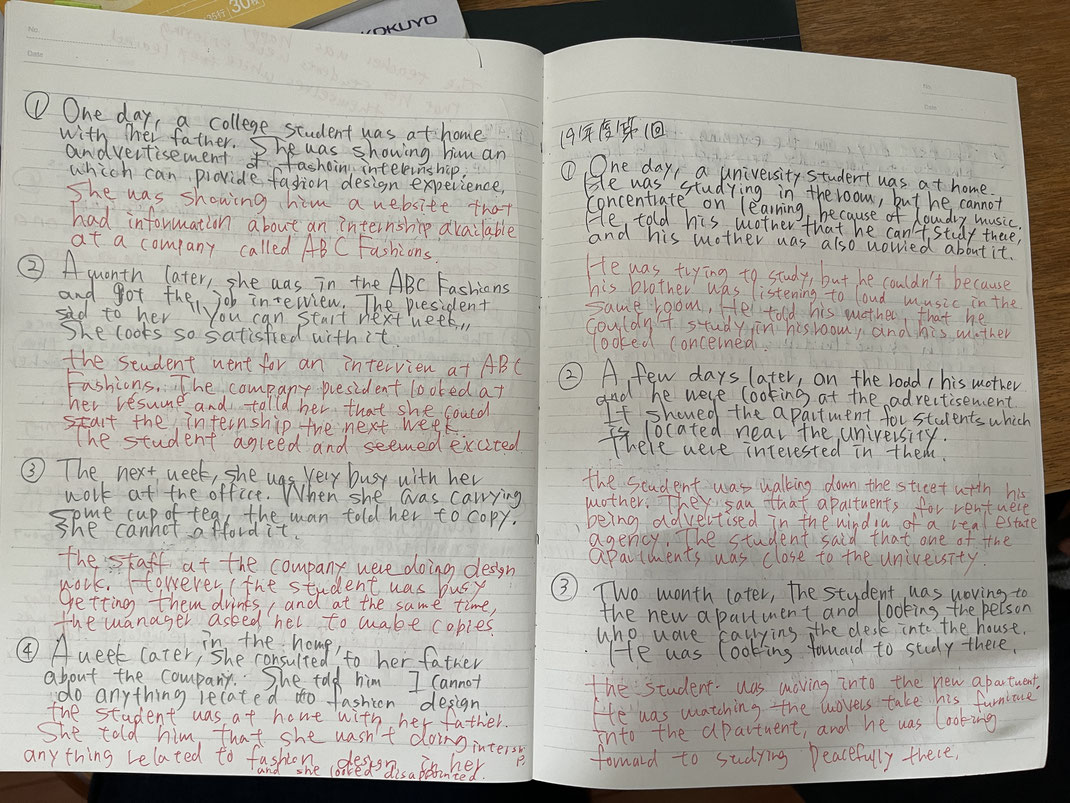 35行 30枚
KOKUYO
No.
Date
① One day, a college student was at home
with her father. She was showing him an
andvertisement of fashoin inteinship.
which can provide fasion design experience.
She was showing him a website that
had information about an internship available
at a company called ABC Fashions.
② A month later, she was in the ABC Fashions
and got the job interview. The president
sad to her "you can start next week,,
She looks so satisfied with it.
the student went for an interview at ABC
Fashions. The company president looked at
her résume and told her that she could
start the internship the next week.
The student agreed and seemed excited
③ The next week, she was very busy with her
work at the office. When she was carrying
some cup of tea, the man told her to copy.
She cannot afford it.
the staff at the company were doing design
work. However, the student was busy
getting them drinks, and at the same time,
the manager asked her to make copies.
in the home,
④ A week later, she consulted to her father
about the company. She told him I cannot
do anything related to fashion design
the student was at home with her father.
She told him that she wasn't doing
anything related to fashion design in her internship
and she looked disappointed.
No.
Date
19年度第1回
① One day, a university student was at home.
He was studying in the room, but he cannot
concentrate on learning because of loudry music.
He told his mother that he can't study there,
and his mother was also worried about it.
He was trying to study, but he couldn't because
his brother was listening to loud music in the
same room. He told his mother that he
couldn't study in his room, and his mother
looked concerned.
② A few days later, on the road, his mother
and he were looking at the advertisement
It showed the apartment for students which
is located near the university.
There were interested in them.
the student was walking down the street with his
mother. They saw that apartments for rent were
being advertised in the window of a real estate
agency. The student said that one of the
apartments was close to the university.
③ Two month later, The student was moving to
the new apartment and looking the person
who were carrying the desk into the house.
He was looking forward to study there.
the student was moving into the new apartment.
He was watching the movers take his furniture
into the apartment, and he was looking
forward to studying peacefully there.